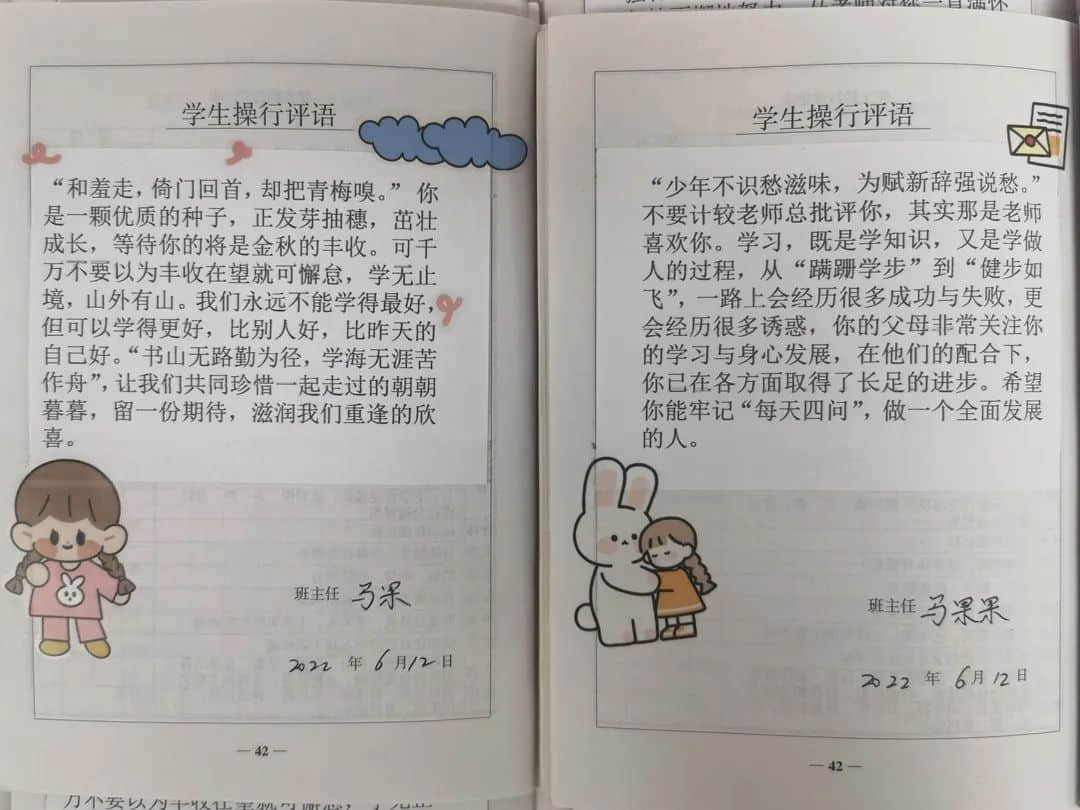 学生操行评语
“和羞走，倚门回首，却把青梅嗅。”你
是一颗优质的种子，正发芽抽穗，茁壮
成长，等待你的将是金秋的丰收。可千
万不要以为丰收在望就可懈怠，学无止
境，山外有山。我们永远不能学得最好，
但可以学得更好，比别人好，比昨天的
自己好。“书山无路勤为径，学海无涯苦
作舟”，让我们共同珍惜一起走过的朝朝
暮暮，留一份期待，滋润我们重逢的欣
喜。
班主任 马果
2022 年 6月12日
— 42 —
学生操行评语
“少年不识愁滋味，为赋新辞强说愁。”
不要计较老师总批评你，其实那是老师
喜欢你。学习，既是学知识，又是学做
人的过程，从“蹒跚学步”到“健步如
飞”，一路上会经历很多成功与失败，更
会经历很多诱惑，你的父母非常关注你
的学习与身心发展，在他们的配合下，
你已在各方面取得了长足的进步。希望
你能牢记“每天四问”，做一个全面发展
的人。
班主任 马果果
2022 年 6月12日
— 42 —